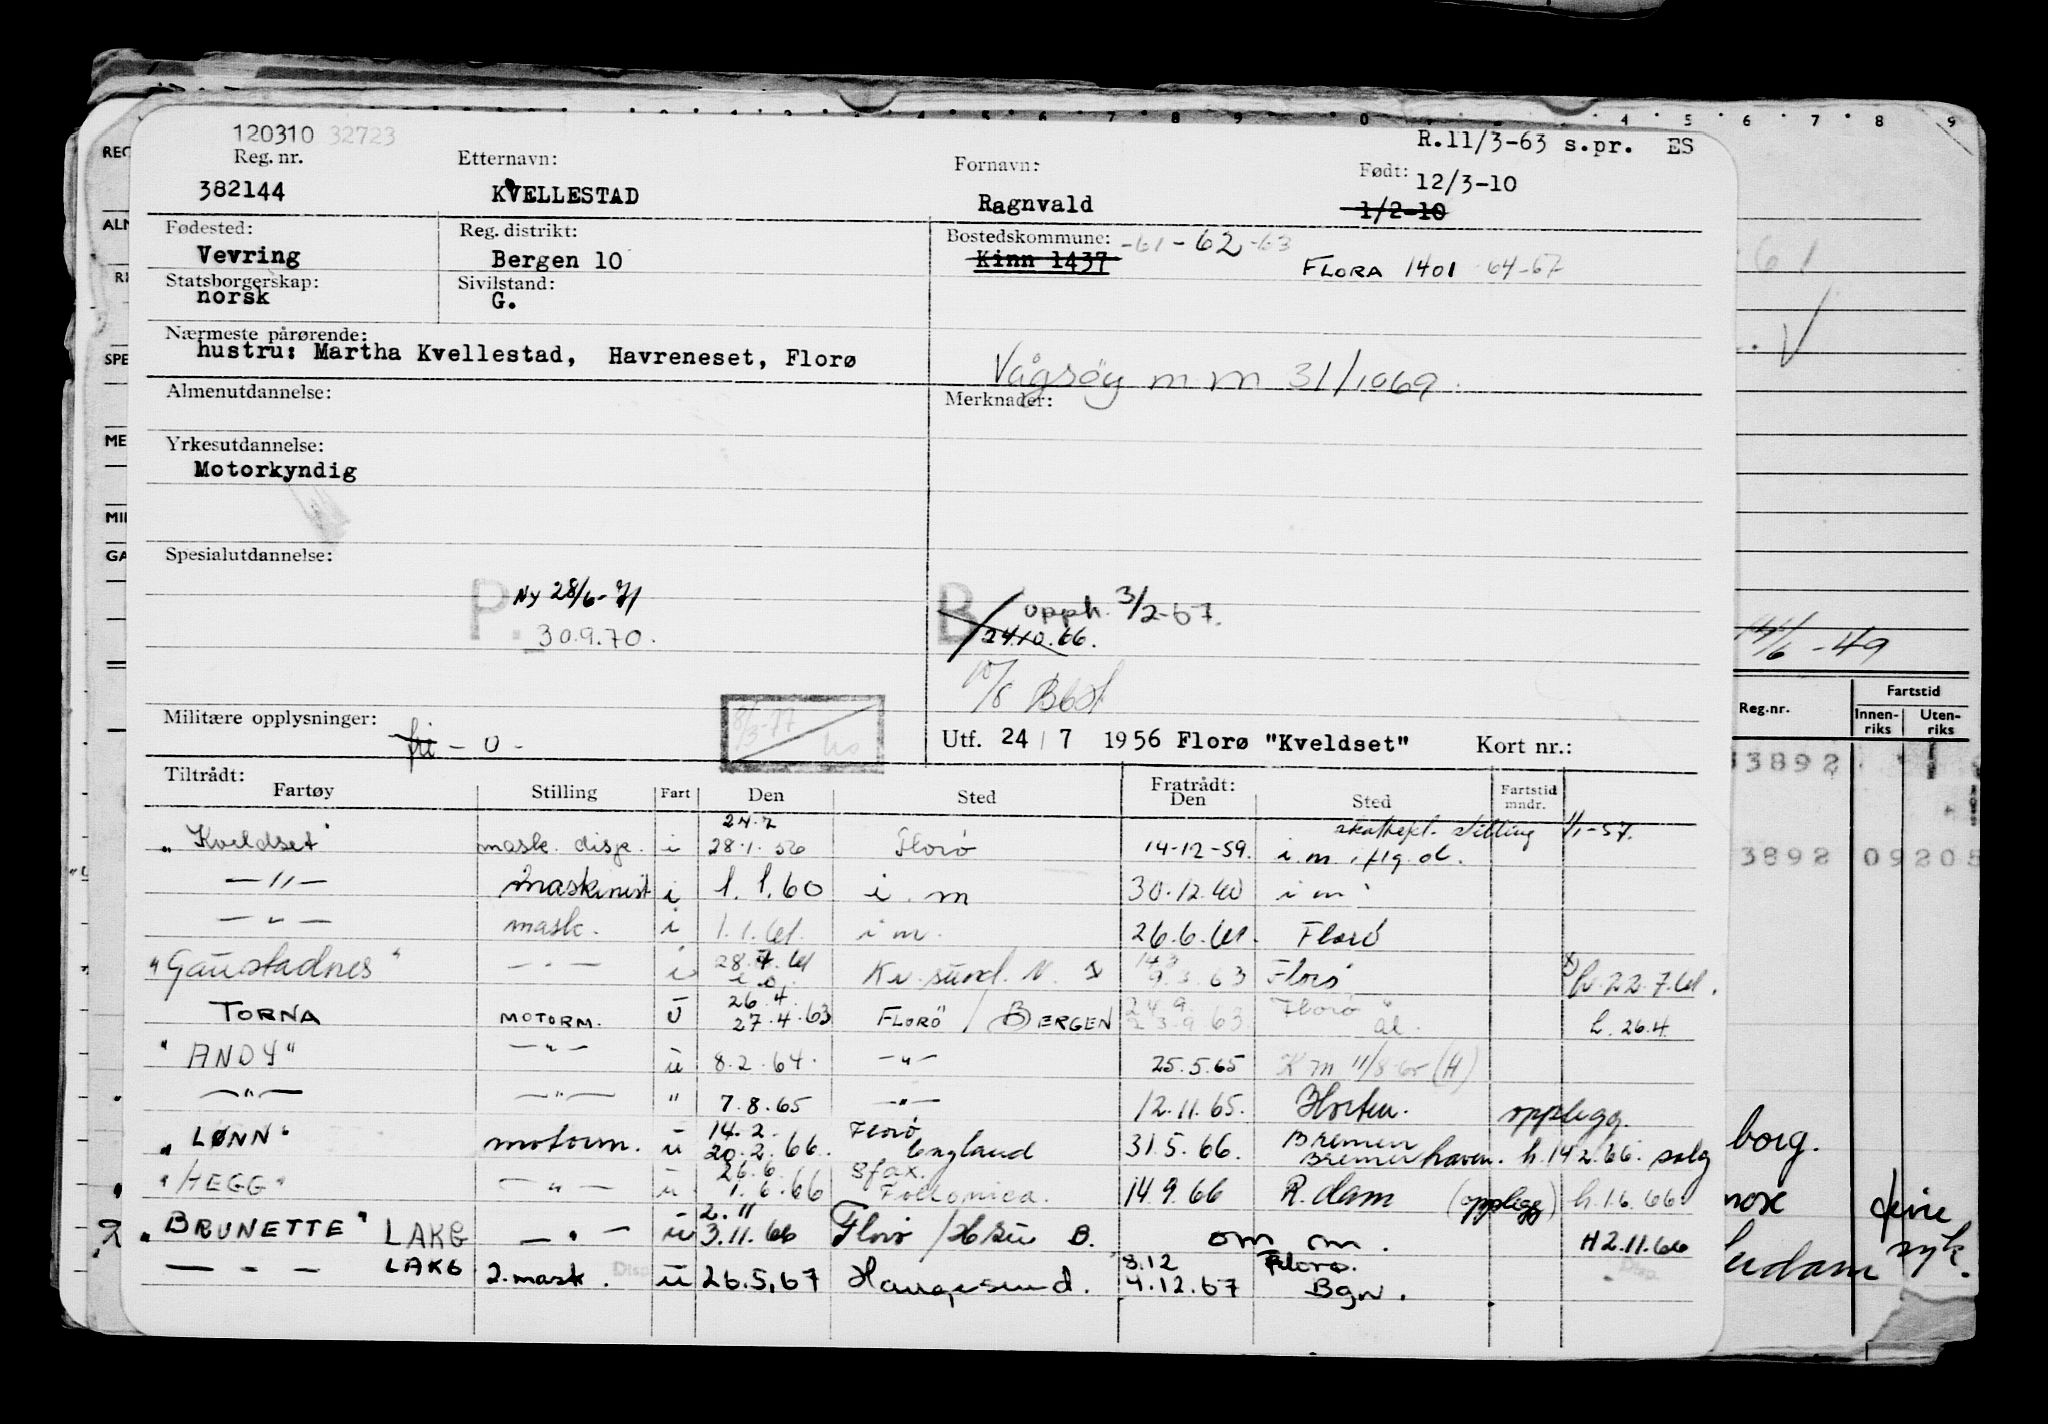 120310 32723
R.11/3-63 s.pr. ES
Reg. nr. Etternavn: Fornavn: Født: 12/3-10
382144 KVELLESTAD Ragnvald 1/2-10
Fødested: Reg. distrikt: Bostedskommune: -61-62-63
Vevring Bergen 10 Kinn 1437 FLORA 1401 64-67
Statsborgerskap: Sivilstand:
norsk G.
Nærmeste pårørende:
hustru: Martha Kvellestad, Havreneset, Florø
Vågsøy m m 31/1069.
Almenutdannelse: Merknader:
Yrkesutdannelse:
Motorkyndig
Spesialutdannelse:
P. Ny 28/6-71 B opph. 3/2-67.
30.9.70. 24.10.66.
10/8
Militære opplysninger: fri - 0 - 8/3-77
Utf. 24/7 1956 Florø "Kveldset" Kort nr.:
Tiltrådt: Fratrådt:
Fartøy Stilling Fart Den Sted Den Sted Fartstid mndr.
24.7 stilling 1/1-57.
"Kveldset" mask. disp. i 28.1.56 Florø 14-12-59. i.m.
—"— Maskinist i 1.1.60 i.m 30.12.60 i m
—"— mask. i 1.1.61. i m. 26.6.61. Florø
"Gaustadnes" —"— i 28.7.61 Kr. sund. N. 9.3.63 Florø h. 22.7.61.
26.4. 24.9. Florø
TORNA MOTORM. U 27.4.63 FLORØ / BERGEN 23.9.63 h. 26.4
"ANDY" —"— u 8.2.64. —"— 25.5.65 K m 11/8-65 (H)
—"— —"— " 7.8.65 —"— 12.11.65. Horten. opplegg.
14.2. Florø Bremen
"LØNN" motorm. u 20.2.66. England 31.5.66. Bremerhaven. h.14.2.66. salg
26.6. Sfax.
"HEGG" —"— u 1.6.66 Follonica. 14.9.66 R.dam (opplegg) h.1.6.66
2.11
"BRUNETTE" LAKG —"— u 3.11.66 Florø / H.su B. om m. H 2.11.66
8.12 Florø.
— " — LAKG 2. mask. Disp u 26.5.67 Haugesund. 4.12.67 Bgn. Disp.
61
14/6-49
Fartstid
Reg.nr. Innen-riks Uten-riks
3892
3892 09205
borg.